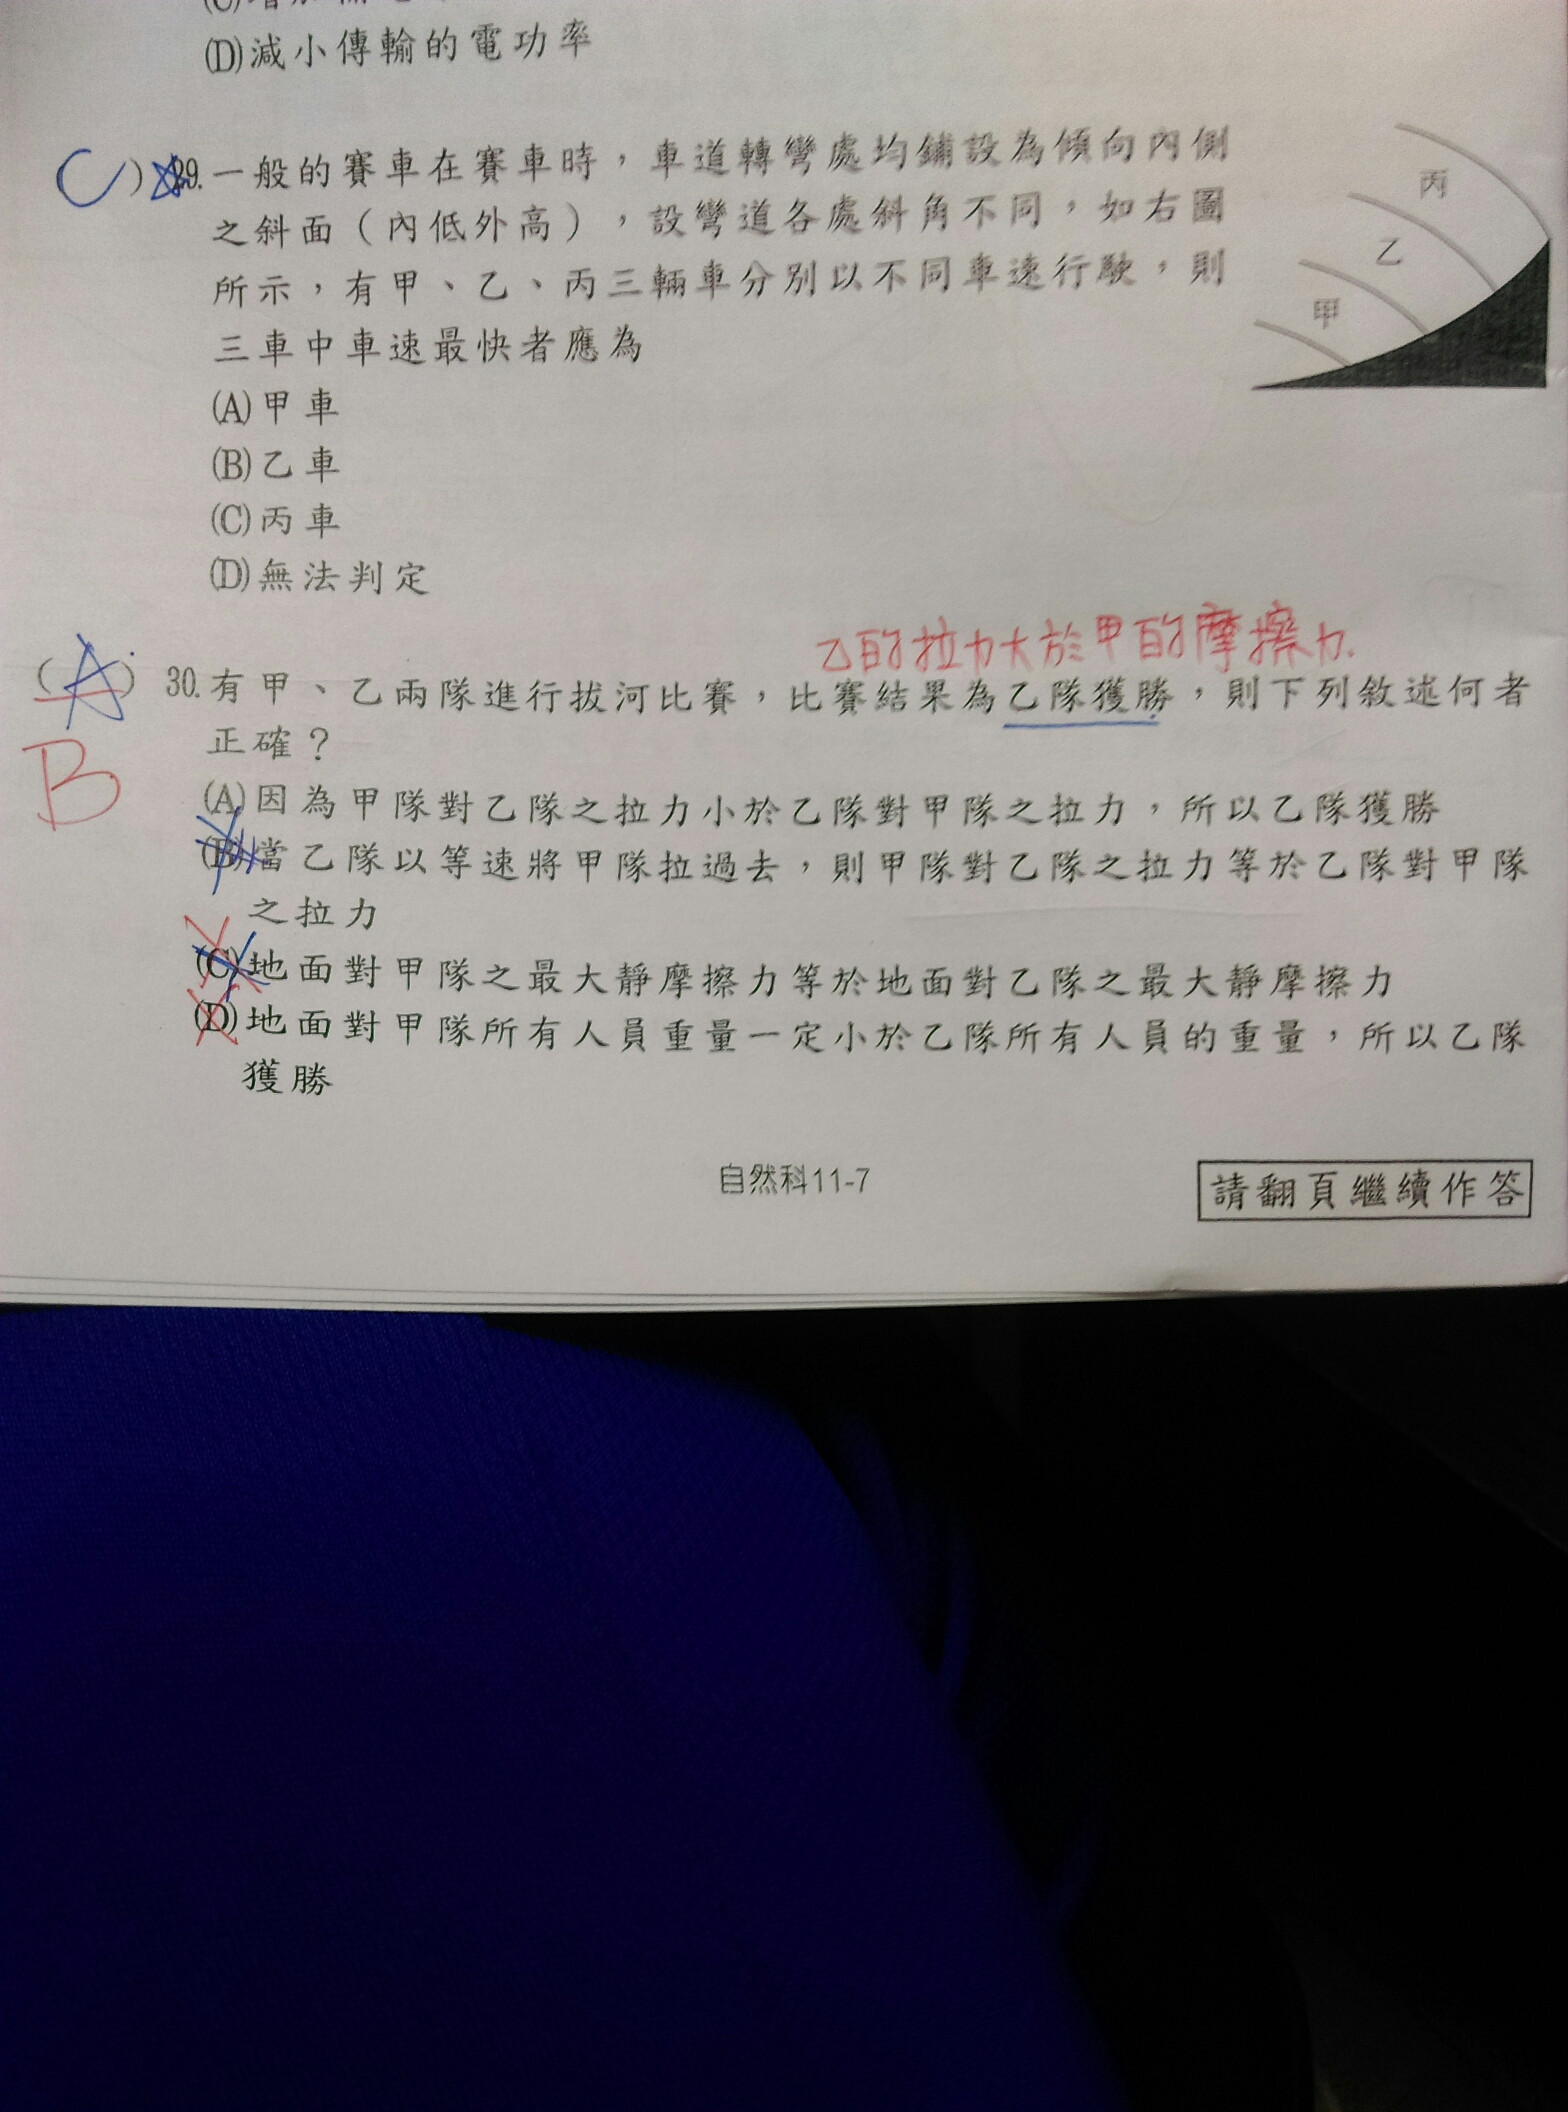 (D)減小傳輸的電功率
C)☆29.一般的賽車在賽車時，車道轉彎處均鋪設為傾向內側
之斜面（內低外高），設彎道各處斜角不同，如右圖
所示，有甲、乙、丙三輛車分別以不同車速行駛，則
三車中車速最快者應為
丙
乙
甲
(A)甲車
(B)乙車
(C)丙車
(D)無法判定
乙的拉力大於甲的摩擦力.
(A) 30.有甲、乙兩隊進行拔河比賽，比賽結果為乙隊獲勝，則下列敘述何者
B
正確？
(A)因為甲隊對乙隊之拉力小於乙隊對甲隊之拉力，所以乙隊獲勝
(B)當乙隊以等速將甲隊拉過去，則甲隊對乙隊之拉力等於乙隊對甲隊
之拉力
(C)地面對甲隊之最大靜摩擦力等於地面對乙隊之最大靜摩擦力
(D)地面對甲隊所有人員重量一定小於乙隊所有人員的重量，所以乙隊
獲勝
自然科11-7
請翻頁繼續作答